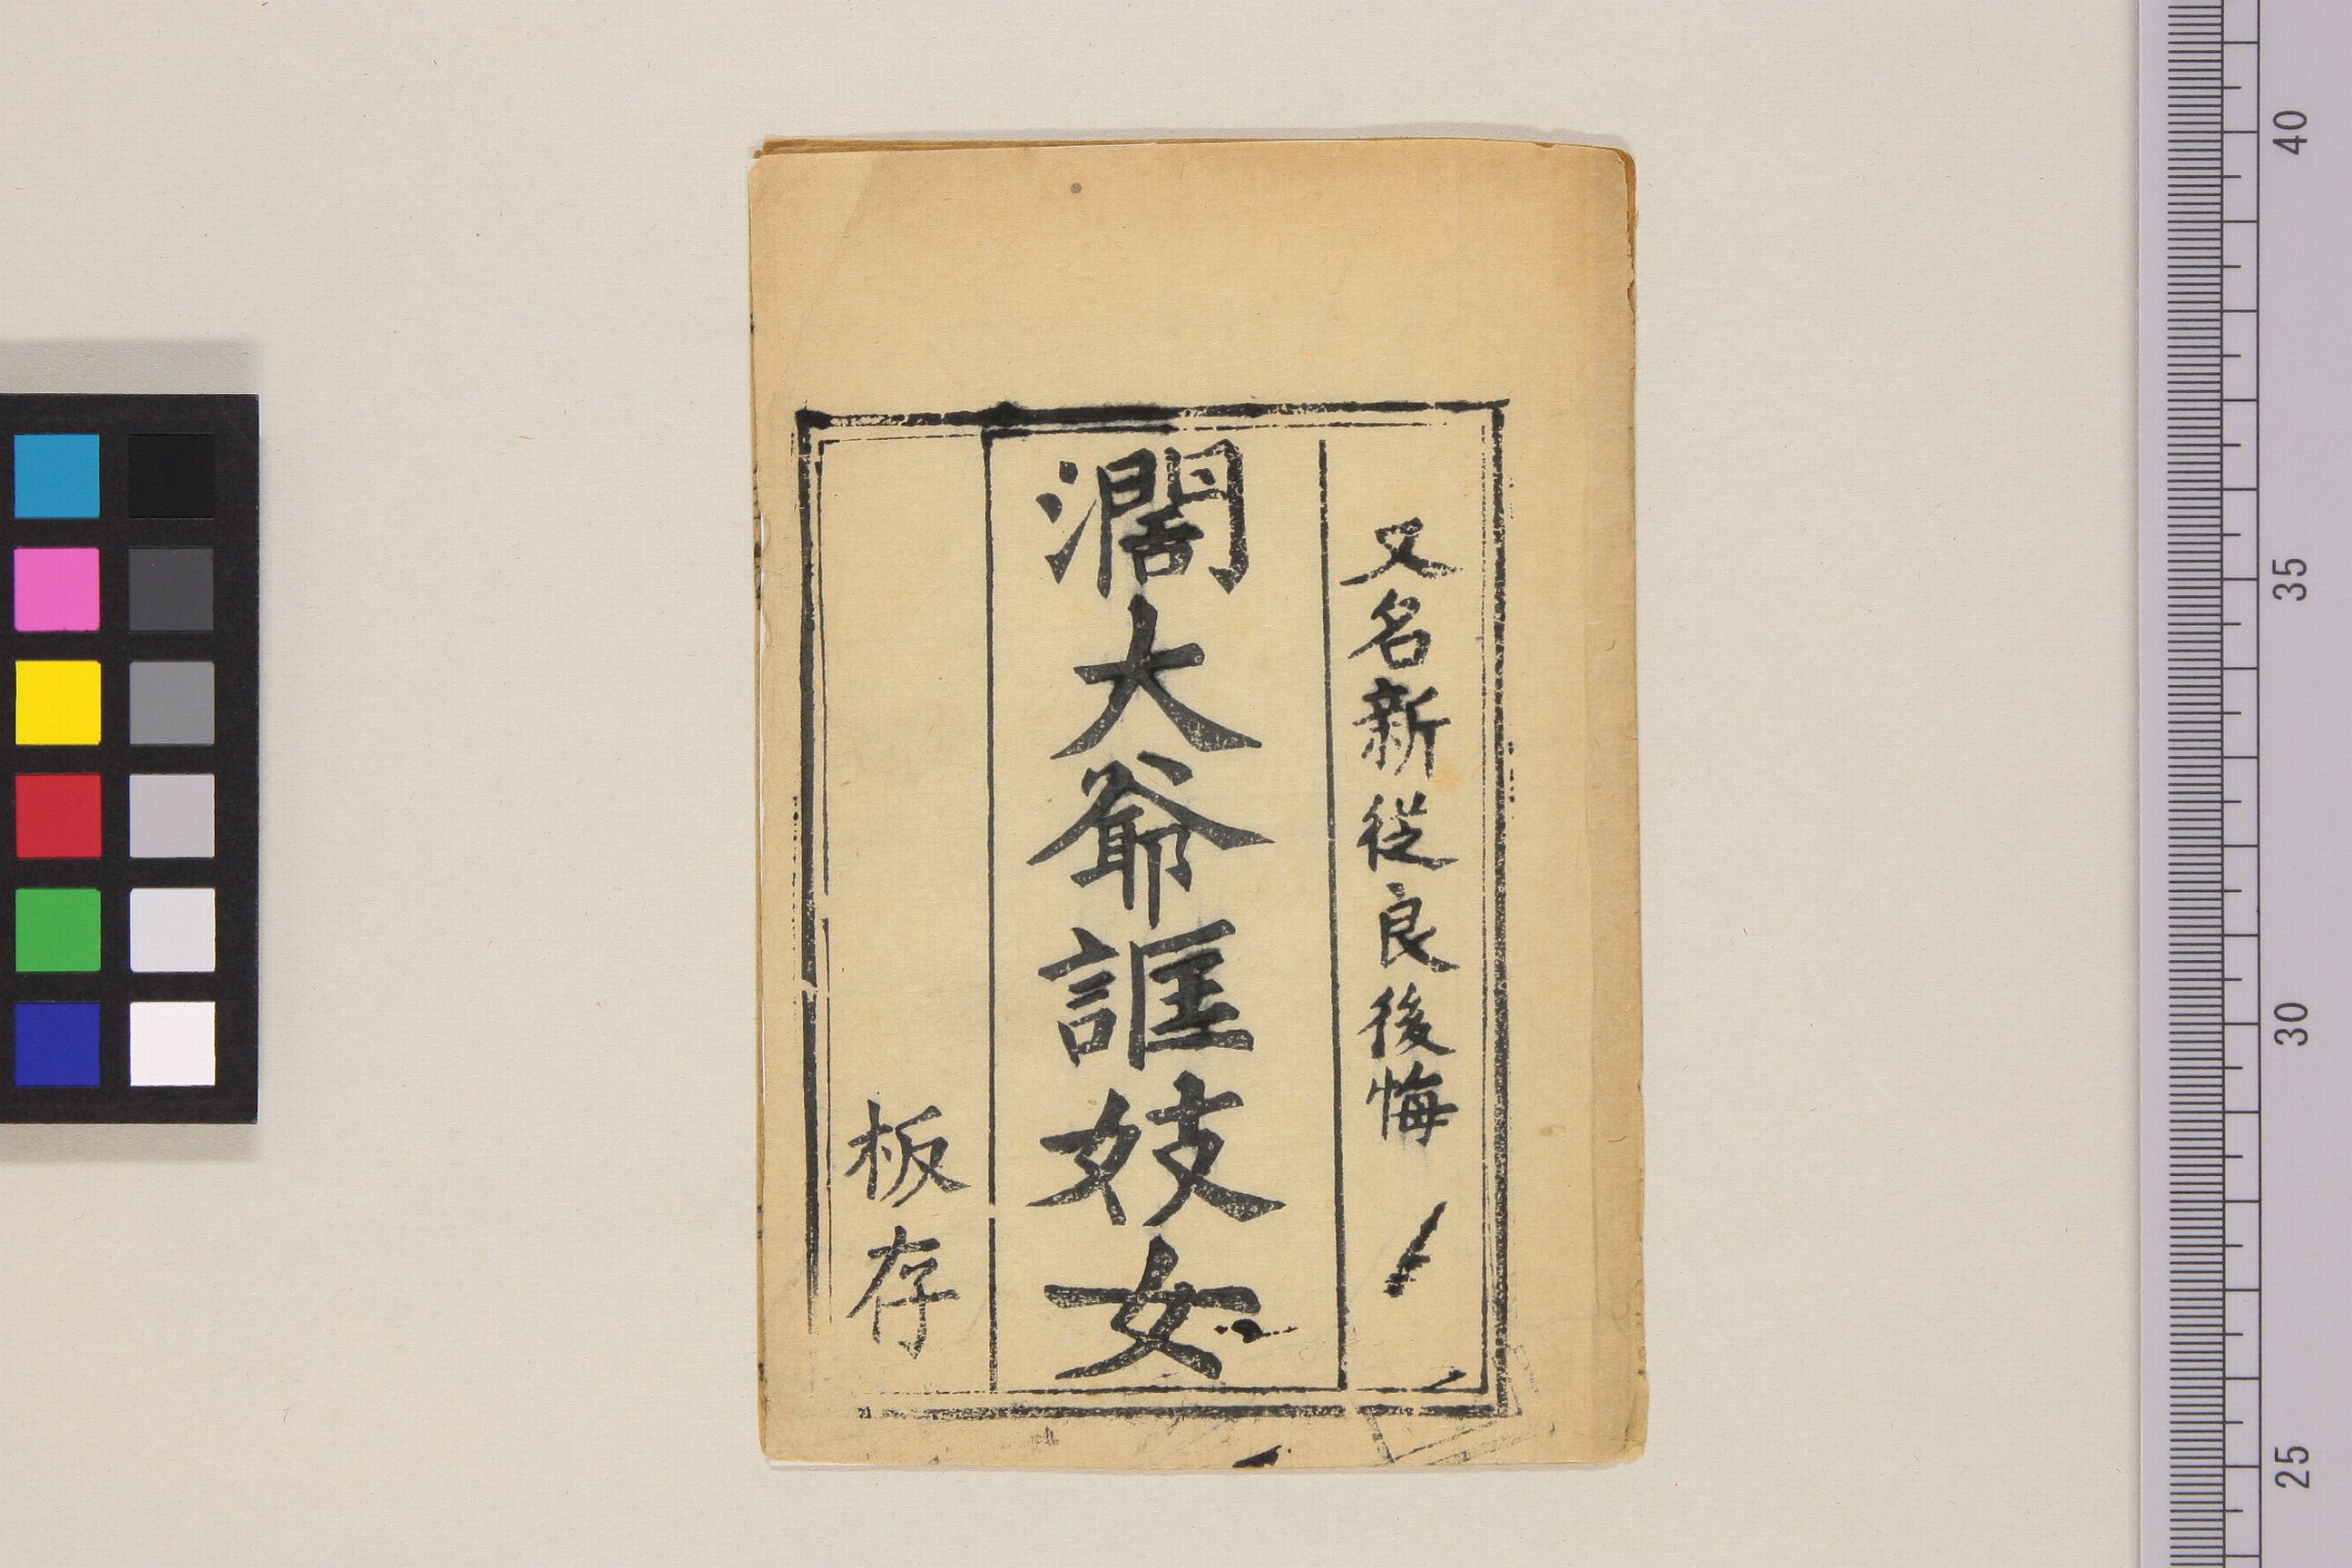 又名新從良後悔
濶大爺誆妓女
板存
40
35
30
25